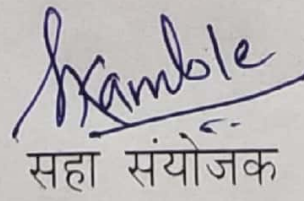 Kamble
सहा संयोजक